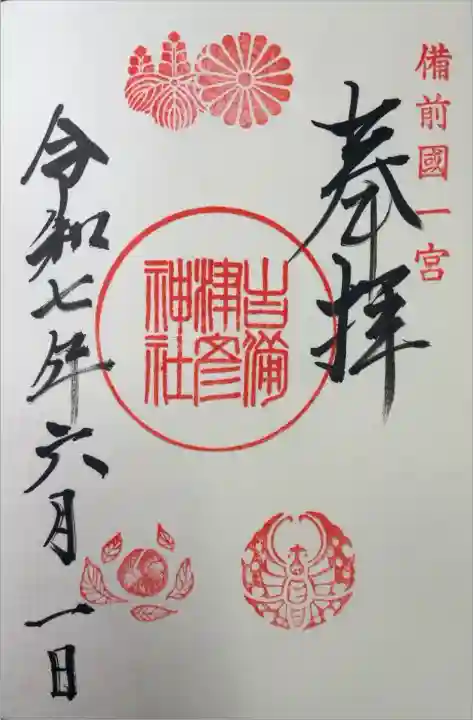 備前國一宮
奉拝
吉備
津彦
神社
令和七年六月一日